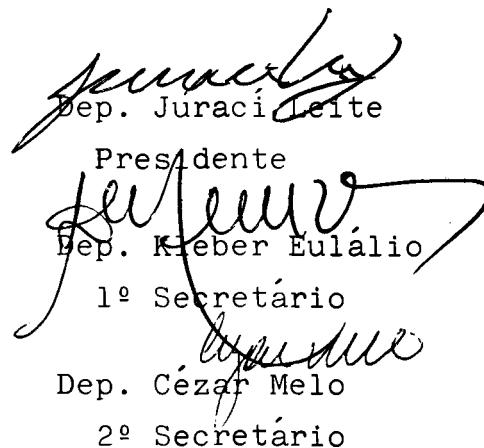 Dep. Juraci Leite
Presidente
Dep. Kleber Eulálio
1º Secretário
Dep. Cézar Melo
2º Secretário